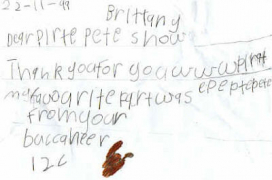 22-11-99
Brittany
Dear pirte pete show
Thank you for you
my favourite part was
from your
buccaneer
12c